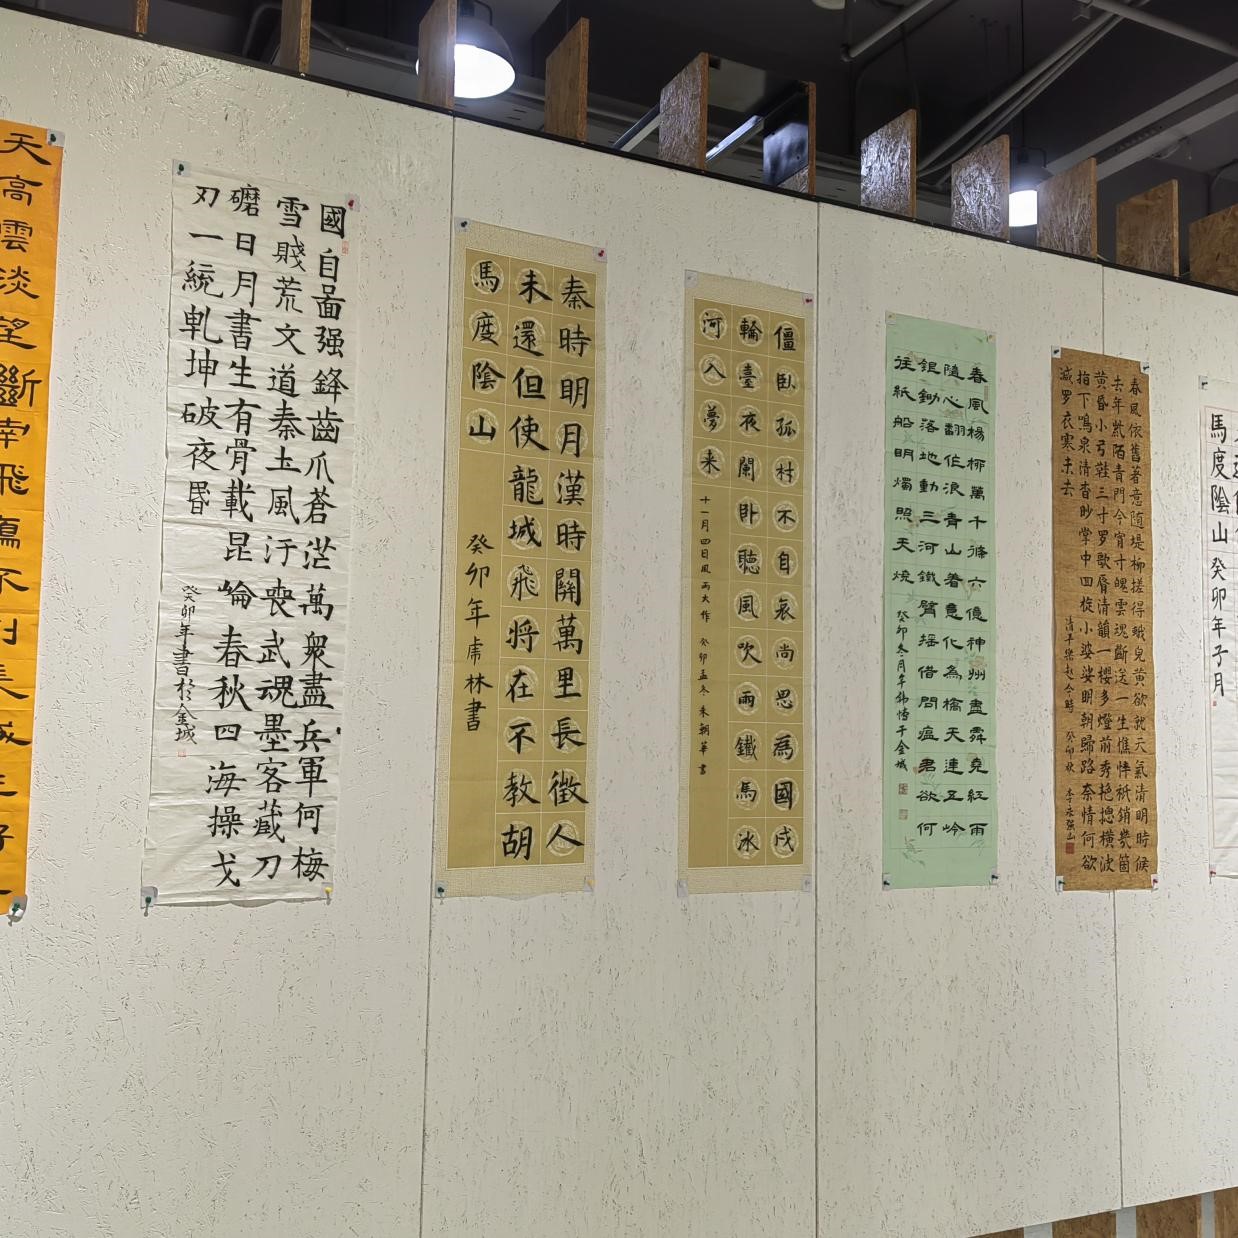 天高雲淡望斷南飛鴈不到長城
國自昷强鋒齒爪蒼茫萬衆盡兵軍何梅
雪賤荒文道秦土風汙喪武魂墨客蔵刀
礳日月書生有骨載昆崘春秋四海操戈
刃一統乹坤破夜昬
癸卯年書於金城
秦時明月漢時關萬里長徵人
未還但使龍城飛将在不教胡
馬度陰山
癸卯年虎林書
僵臥孤村不自哀尚思為國戍
輪臺夜闌卧聽風吹雨鐵馬冰
河入夢来
十一月四日風雨大作 癸卯孟冬朱朝華書
春風楊柳萬千條六億神州盡舜堯紅雨
隨心翻作浪青山着意化為橋天連五岭
银鋤落地動三河鐵臂摇借問瘟君欲何
往紙船明燭照天燒
春風依舊著意随堤柳搓得蛾兒黄欲就天氣清明時候
去年紫陌青門今宵雨魄雲魂斷送一生憔悴衹銷幾箇
黄昏小弓鞋三寸罗歌唇清韻一櫻多燈前秀艳摠横波
指下鳴泉清杳眇掌中回旋小婆娑明朝歸路奈情何欲
减罗衣寒未去
清平樂赵令畤 癸卯秋
馬度陰山 癸卯年子月